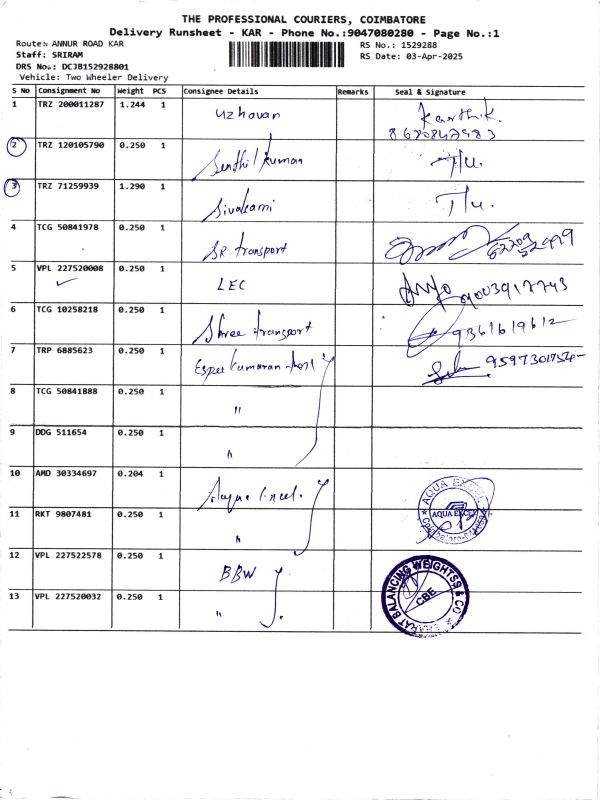 THE PROFESSIONAL COURIERS, COIMBATORE
Delivery Runsheet - KAR - Phone No.:9047080280 - Page No.:1
Route: ANNUR ROAD KAR
RS No.: 1529288
Staff: SRIRAM
RS Date: 03-Apr-2025
DRS No.: DCJB152928801
Vehicle: Two Wheeler Delivery
S No Consignment No Weight PCS Consignee Details Remarks Seal & Signature
1 TRZ 200011287 1.244 1 uzhavan Karthik.
2 TRZ 120105790 0.250 1 Senthil kumar
3 TRZ 71259939 1.290 1 Sivakami
4 TCG 50841978 0.250 1 SR transport
5 VPL 227520008 0.250 1 LEC 9003917743
6 TCG 10258218 0.250 1 Shree transport 9361619612
7 TRP 6885623 0.250 1
8 TCG 50841888 0.250 1 "
9 DDG 511654 0.250 1 "
10 AMD 30334697 0.204 1 AQUA EXCEL
AQUA EXCEL
11 RKT 9807481 0.250 1 "
12 VPL 227522578 0.250 1 BBW BHARAT BALANCING WEIGHTSS & CO
CBE
13 VPL 227520032 0.250 1 "